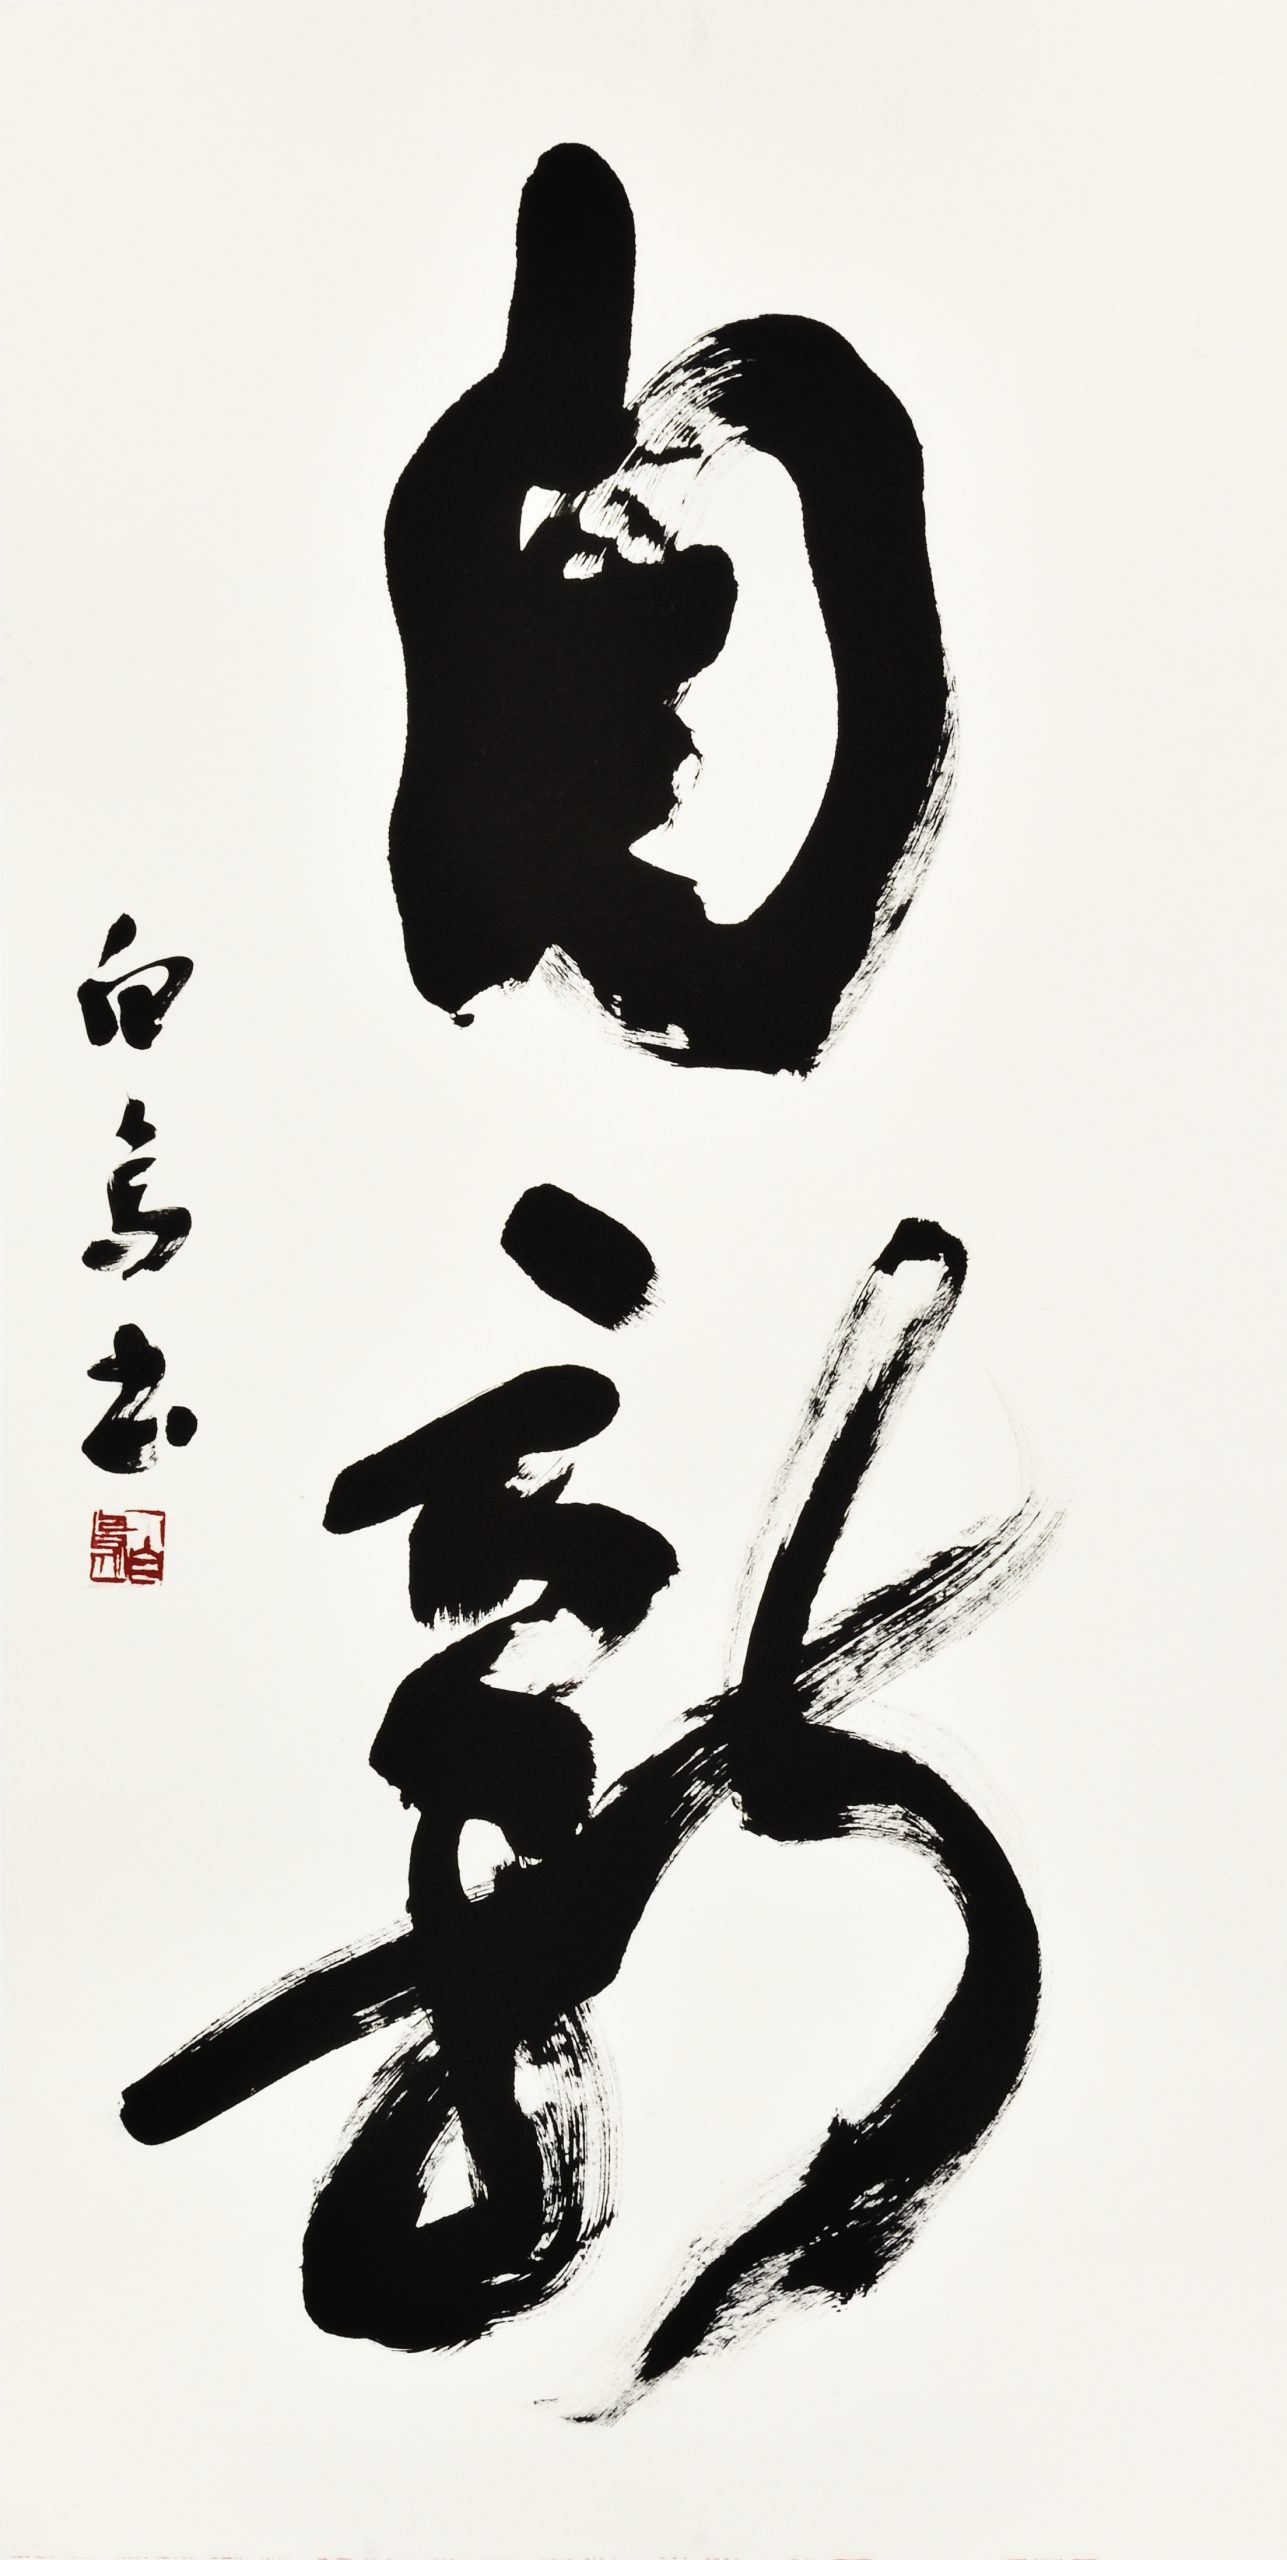 自新
白鳥書